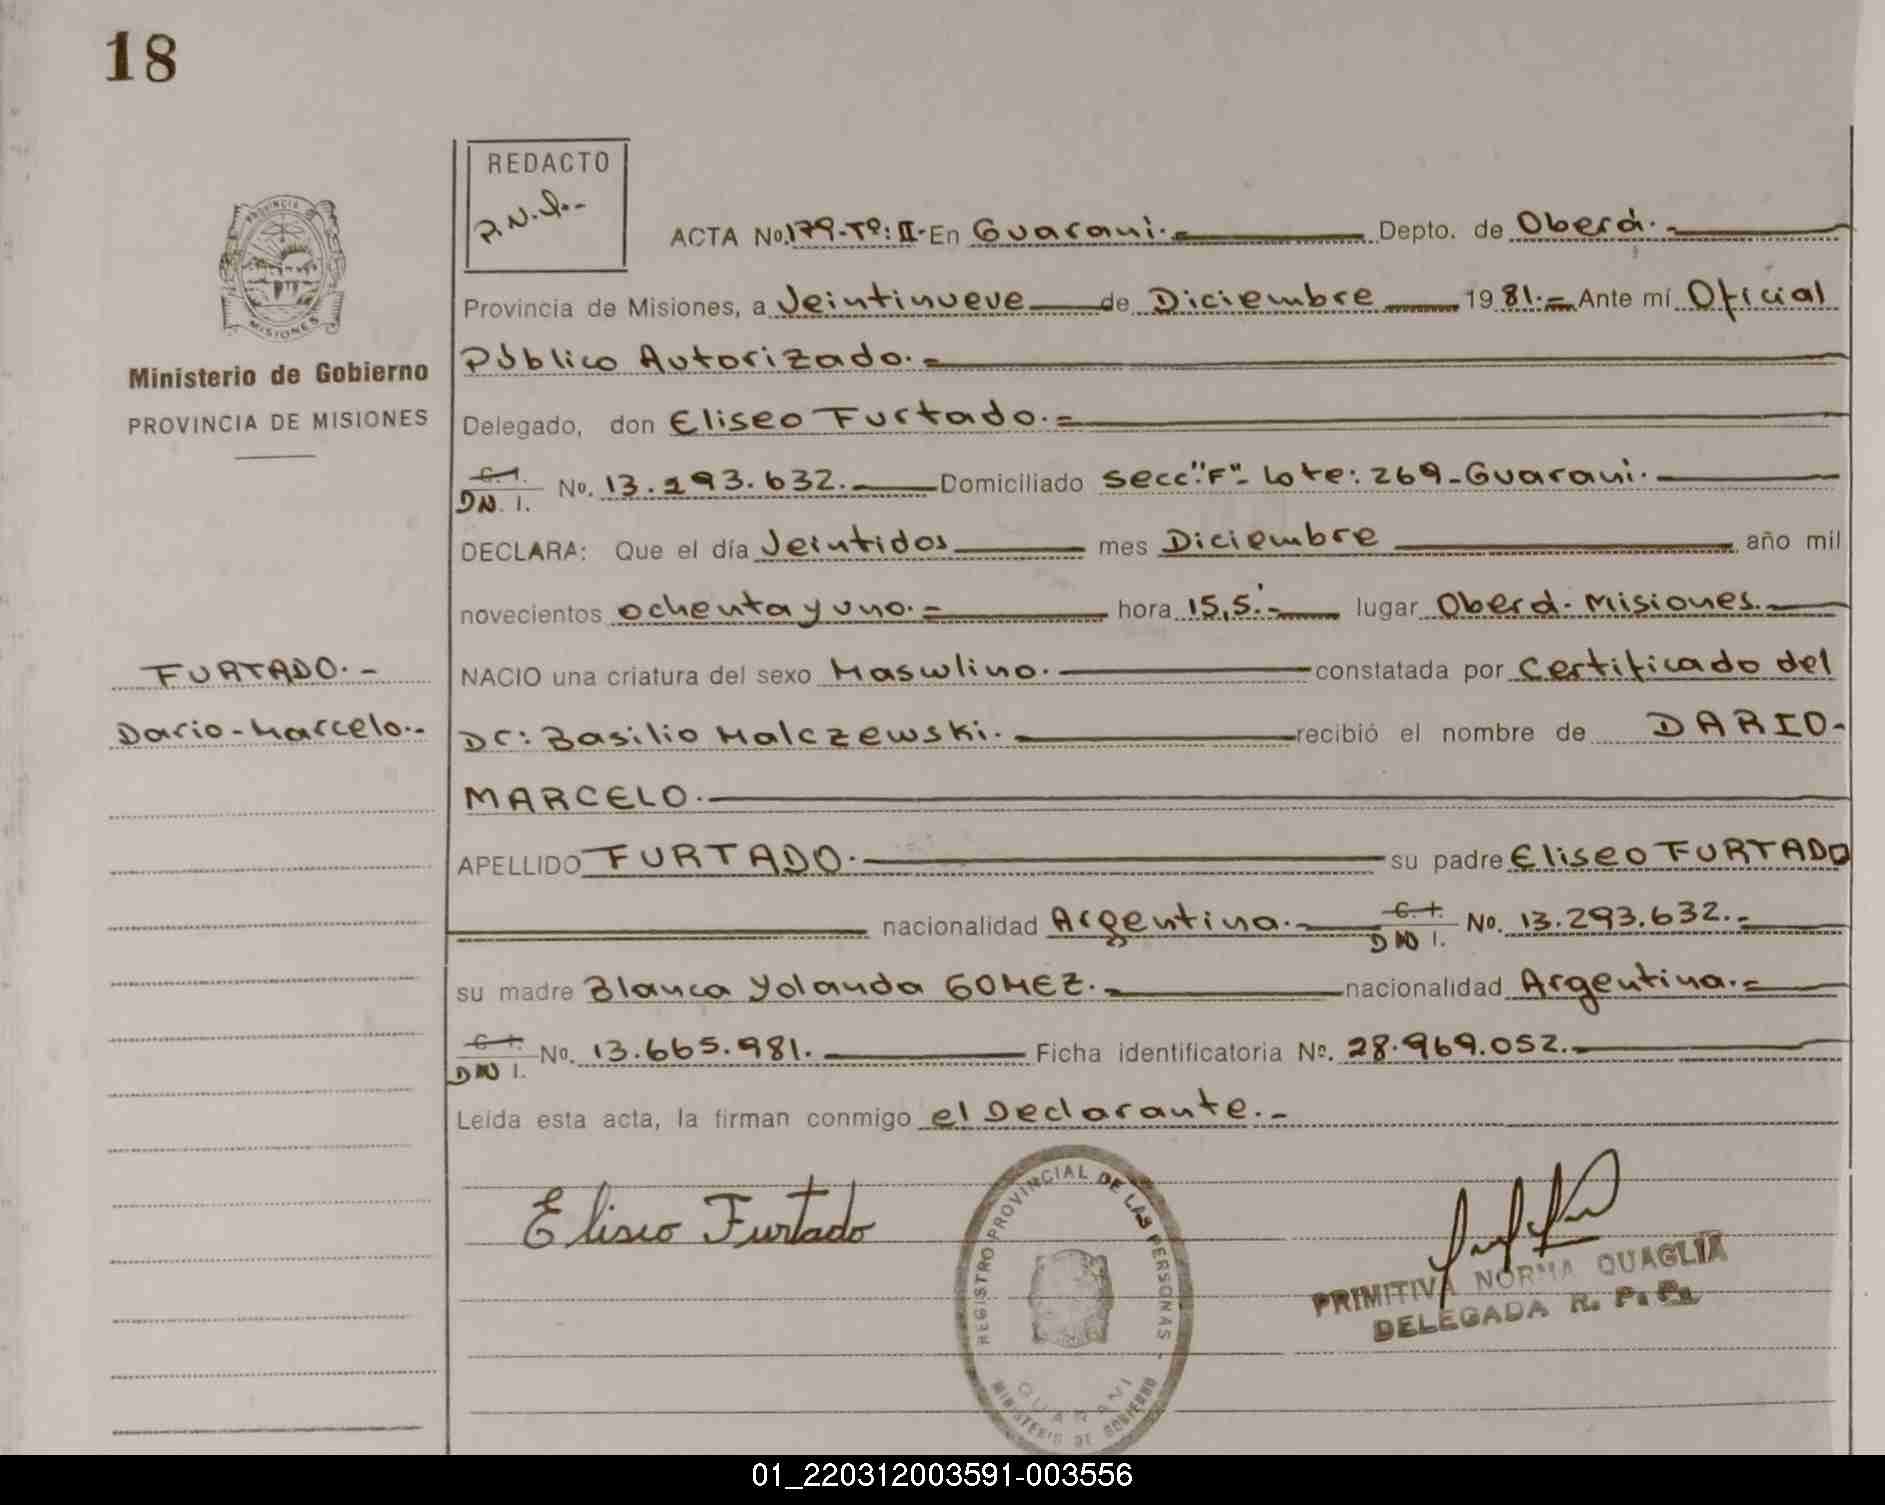 18
REDACTO
P.N.Q.-
PROVINCIA
MISIONES
Ministerio de Gobierno
PROVINCIA DE MISIONES
ACTA No. 179-Tº: II- En Guarani.- Depto. de Oberá.-
Provincia de Misiones, a Veintinueve de Diciembre 1981.- Ante mí Oficial
Público Autorizado.-
Delegado, don Eliseo Furtado.-
C. I.
DN. I. No. 13.293.632. Domiciliado Secc"F"- Lote: 269-Guarani.
DECLARA: Que el día Veintidos mes Diciembre año mil
novecientos ochenta y uno.- hora 15,5.- lugar Oberá-Misiones.
FURTADO.-
Dario-Marcelo.-
NACIO una criatura del sexo Masculino. constatada por Certificado del
Dr: Basilio Malczewski. recibió el nombre de DARIO-
MARCELO.
APELLIDO FURTADO. su padre Eliseo FURTADO
nacionalidad Argentina.- C. I. DN I. No. 13.293.632.-
su madre Blanca Yolanda GOMEZ.- nacionalidad Argentina.-
C. I.
DN I. No. 13.665.981. Ficha identificatoria Nº. 28.969.052.
Leída esta acta, la firman conmigo el Declarante.-
Eliseo Furtado
REGISTRO PROVINCIAL DE LAS PERSONAS -
GUARANI
MINISTERIO DE GOBIERNO
PRIMITIVA NORMA QUAGLIA
DELEGADA R. P. P.
01_220312003591-003556